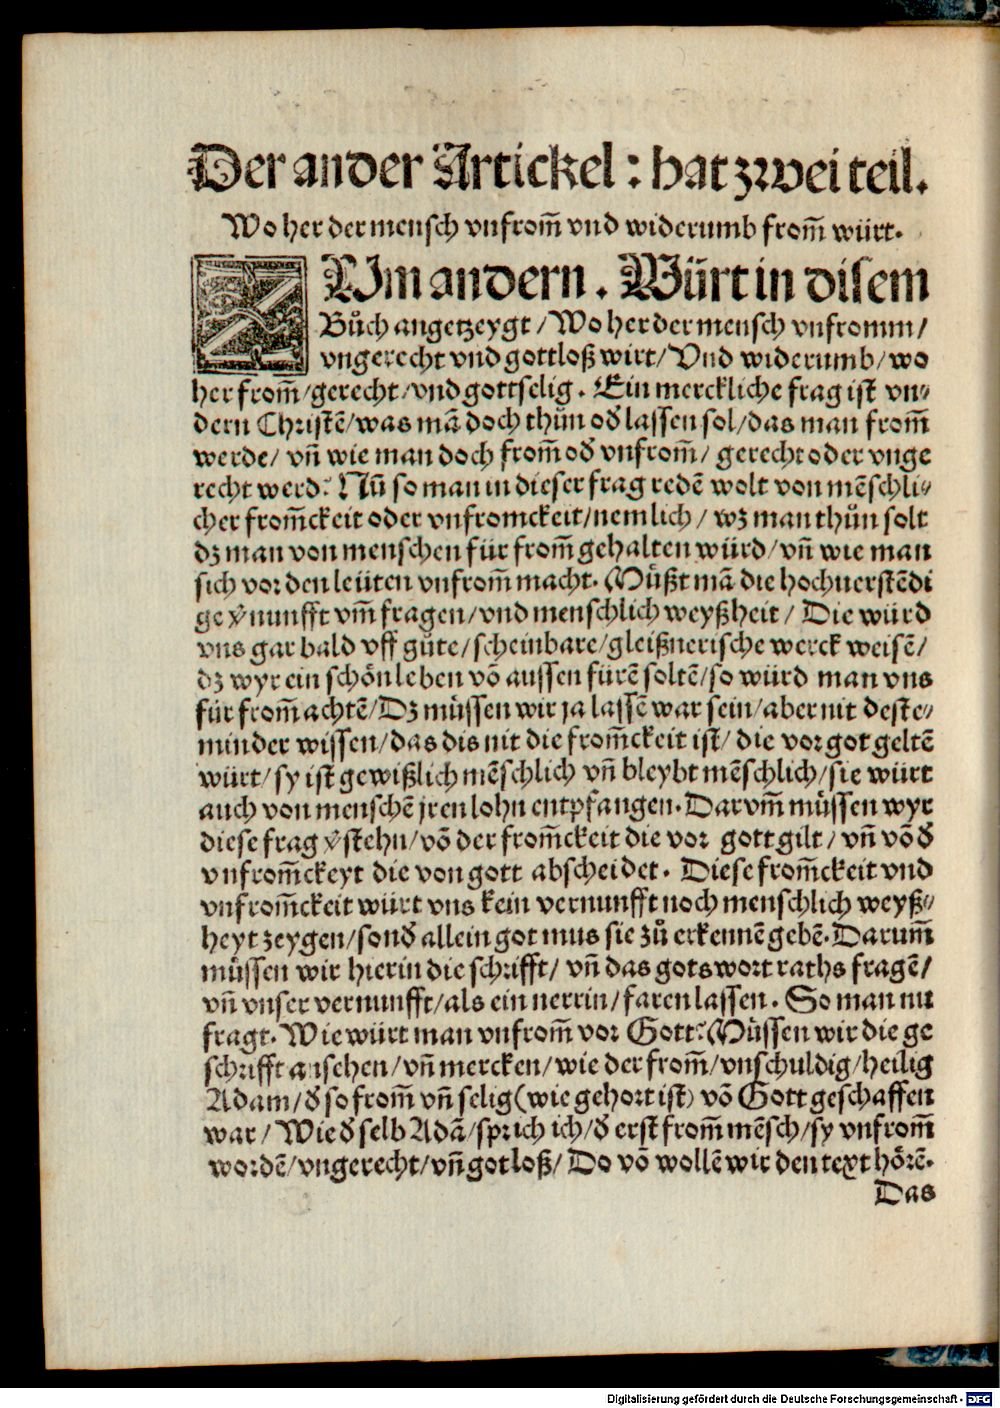 Der ander Artickel: hat zwei teil.
Wo her der mensch vnfrom̃ vnd widerumb from̃ würt.
ZVm andern. Würt in disem
Bůch angetzeygt/Wo her der mensch vnfromm/
vngerecht vnd gottloß wirt/Vnd widerumb/wo
her from̃/gerecht/vnd gottselig. Ein merckliche frag ist vn⸗
dern Christē/was mā doch thůn oď lassen sol/das man from̃
werde/ vñ wie man doch from̃ oď vnfrom̃/ gerecht oder vnge
recht werd? Nū so man in dieser frag redē wolt von mēschli⸗
cher from̃ckeit oder vnfromckeit/nemlich/ wz man thůn solt
dz man von menschen für from̃ gehalten würd/ vñ wie man
sich vor den leüten vnfrom̃ macht. Müßt mā die hochuerstēdi
ge v̾nunfft vm̃ fragen/vnd menschlich weyßheit/ Die würd
vns gar bald vff gůte/scheinbare/gleißnerische werck weisē/
dz wyr ein schön leben vō aussen fürē soltē/so würd man vns
für from̃ achtē/Dz müssen wir ja lassē war sein/aber nit deste⸗
minder wissen/das dis nit die from̃ckeit ist/ die vor got geltē
würt/sy ist gewißlich mēschlich vñ bleybt mēschlich/sie würt
auch von menschē jren lohn entpfangen. Darvm̃ müssen wyr
diese frag v̾stehn/vō der from̃ckeit die vor gott gilt/ vñ vō ď
vnfrom̃ckeyt die von gott abscheidet. Diese from̃ckeit vnd
vnfrom̃ckeit würt vns kein vernunfft noch menschlich weyß⸗
heyt zeygen/sonď allein got mus sie zů erkennē gebē. Darum̃
müssen wir hierin die schrifft/ vñ das gots wort raths fragē/
vñ vnser vernunfft/als ein nerrin/faren lassen. So man nu
fragt. Wie würt man vnfrom̃ vor Gott? Müssen wir die ge
schrifft ansehen/vñ mercken/wie der from̃/vnschuldig/heilig
Adam/ď so from̃ vñ selig (wie gehort ist) vō Gott geschaffen
war/ Wie ď selb Adā/sprich ich/ď erst from̃ mēsch/sy vnfrom̃
wordē/vngerecht/vñ gotloß/ Do vō wollē wir den text hörē.
Das
Digitalisierung gefördert durch die Deutsche Forschungsgemeinschaft - DFG